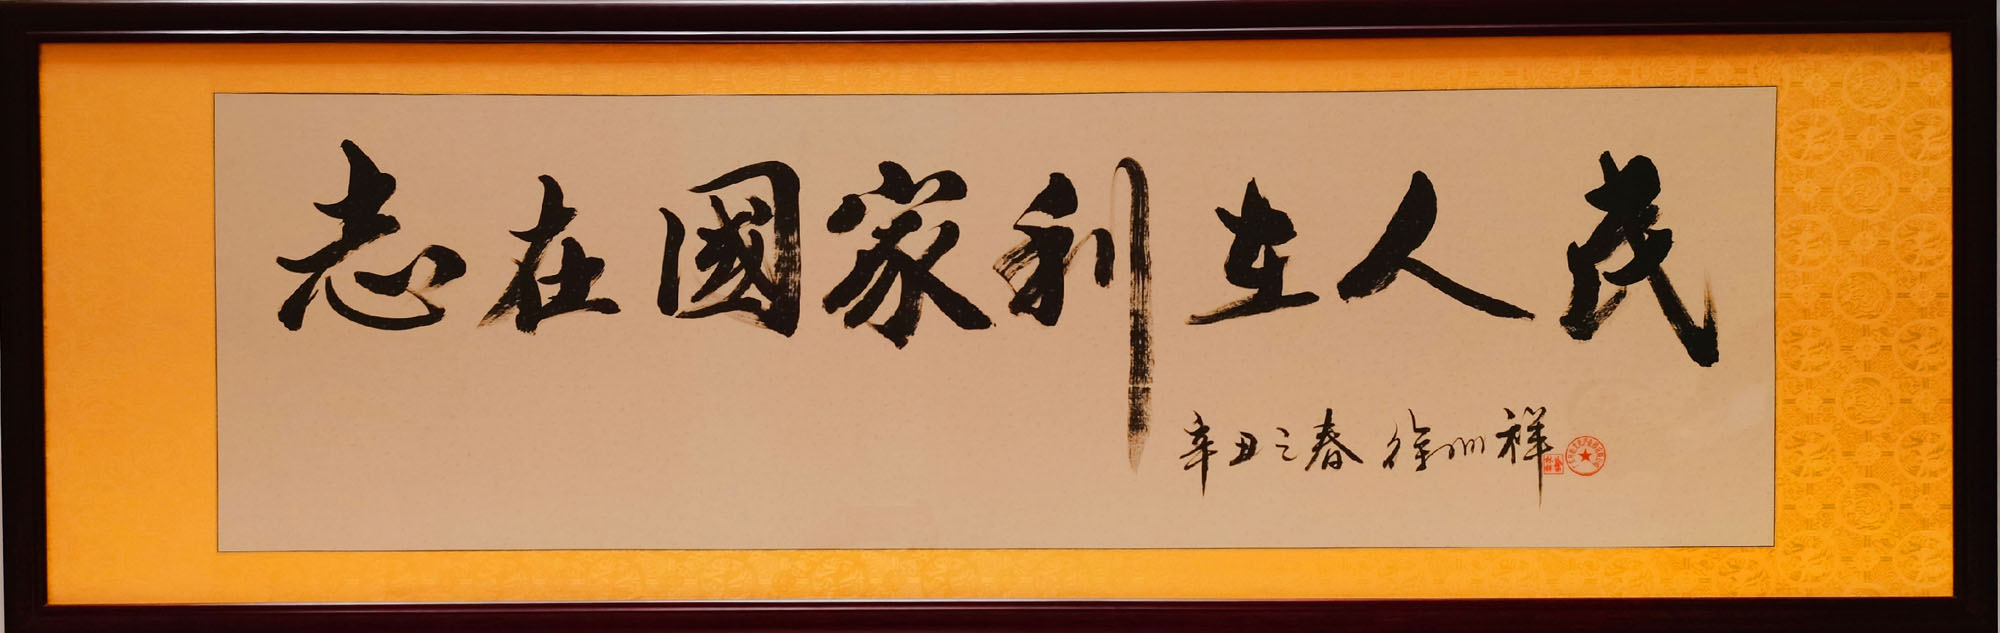 志在國家利在人民
辛丑之春 徐洲祥